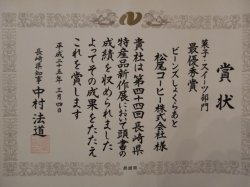 賞状
菓子・スイーツ部門
最優秀賞
ビーンズしょくらあと
松尾コーヒー株式会社 様
貴社は第四十四回長崎県
特産品新作展において頭書の
成績を収められました
よってその成果をたたえ
これを賞します
平成二十五年二月四日
長崎県知事 中村法道